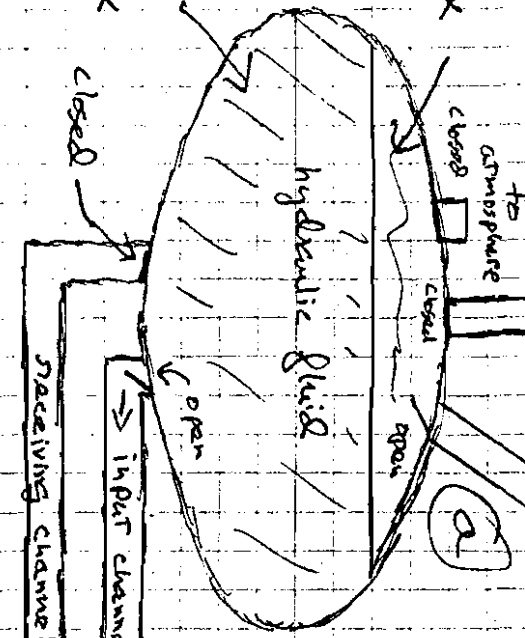 to
atmosphere
closed
closed
open
a
hydraulic fluid
closed
open
→ input chann
receiving channe